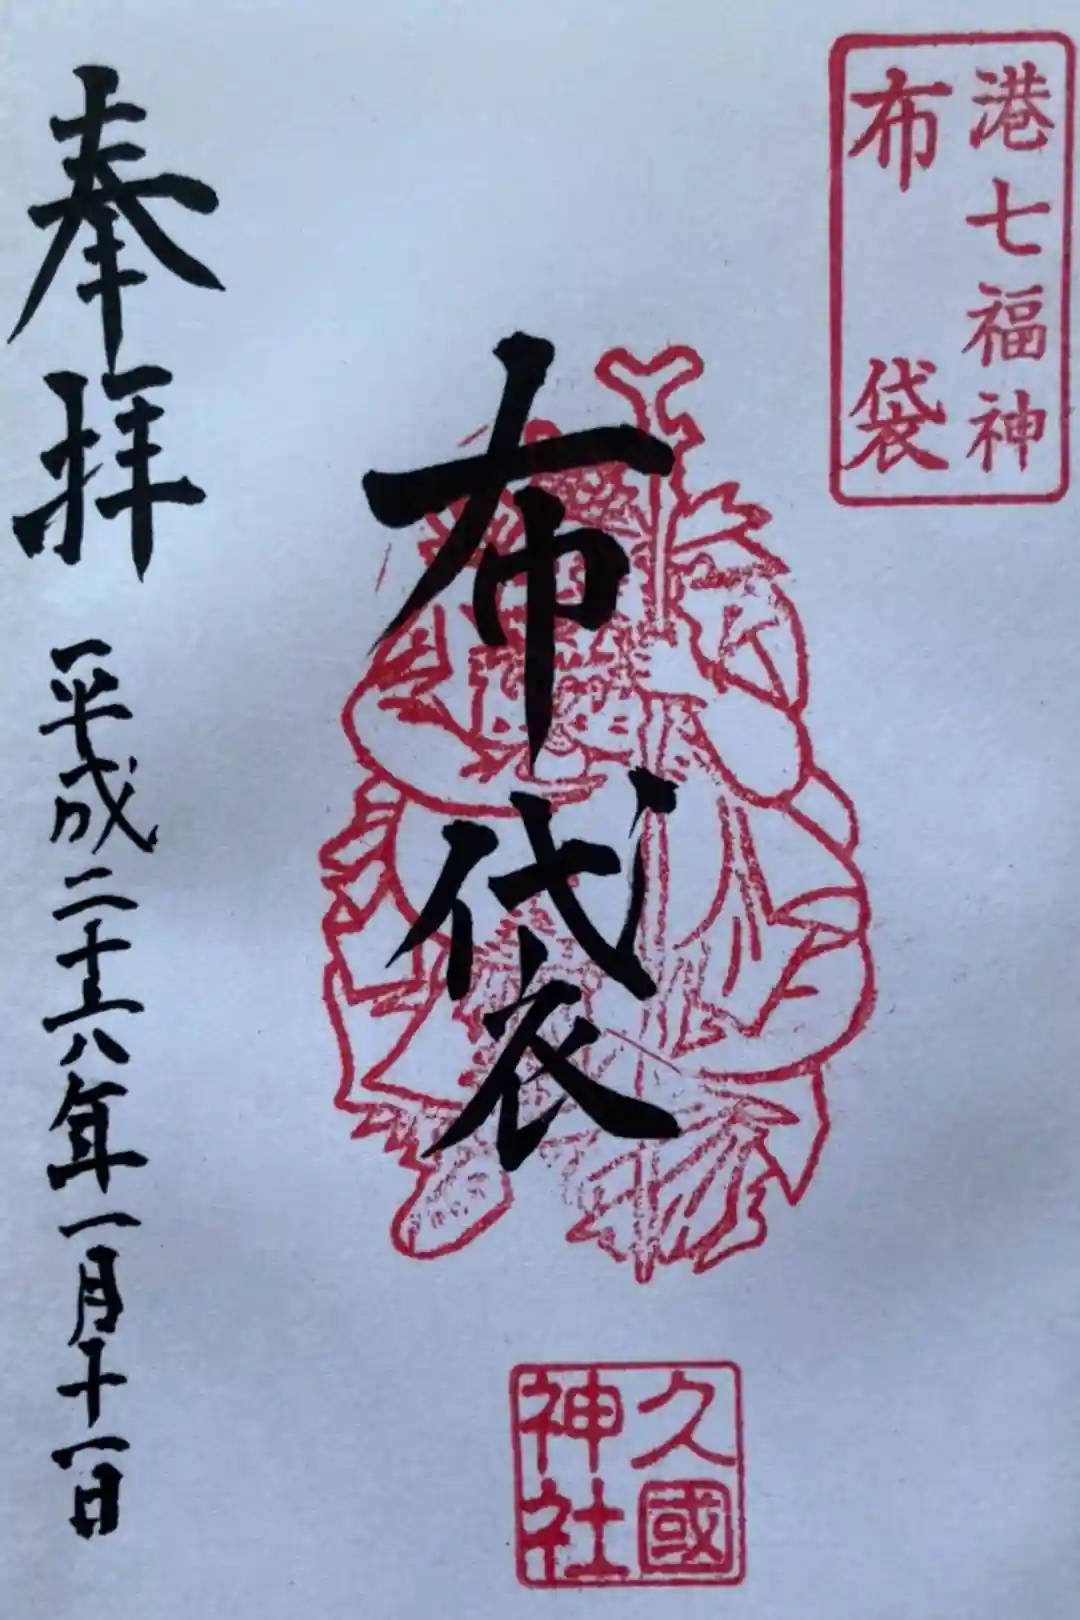 港七福神
布袋
布袋
奉拝
平成二十六年一月十一日
久國
神社